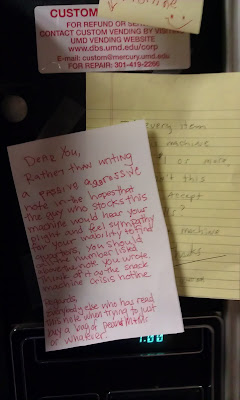 CUSTOM
FOR REFUND OR SER
CONTACT CUSTOM VENDING BY VISITING
UMD VENDING WEBSITE
www.dbs.umd.edu/corp
E-mail: custom@mercury.umd.edu
FOR REPAIR: 301-419-2266
every item
machine
or more
n't this
Accept
s?
machine
Dear You,
Rather than writing
a passive aggressive
note in the hopes that
the guy who stocks this
machine would hear your
plight and feel sympathy
for your inability to find
you should
number listed
above the note you wrote.
of it as the snack
machine crisis hotline.
Regards,
Everybody else who has read
this note when trying to just
buy a bag of peanut M&Ms
or whatever.
1.00